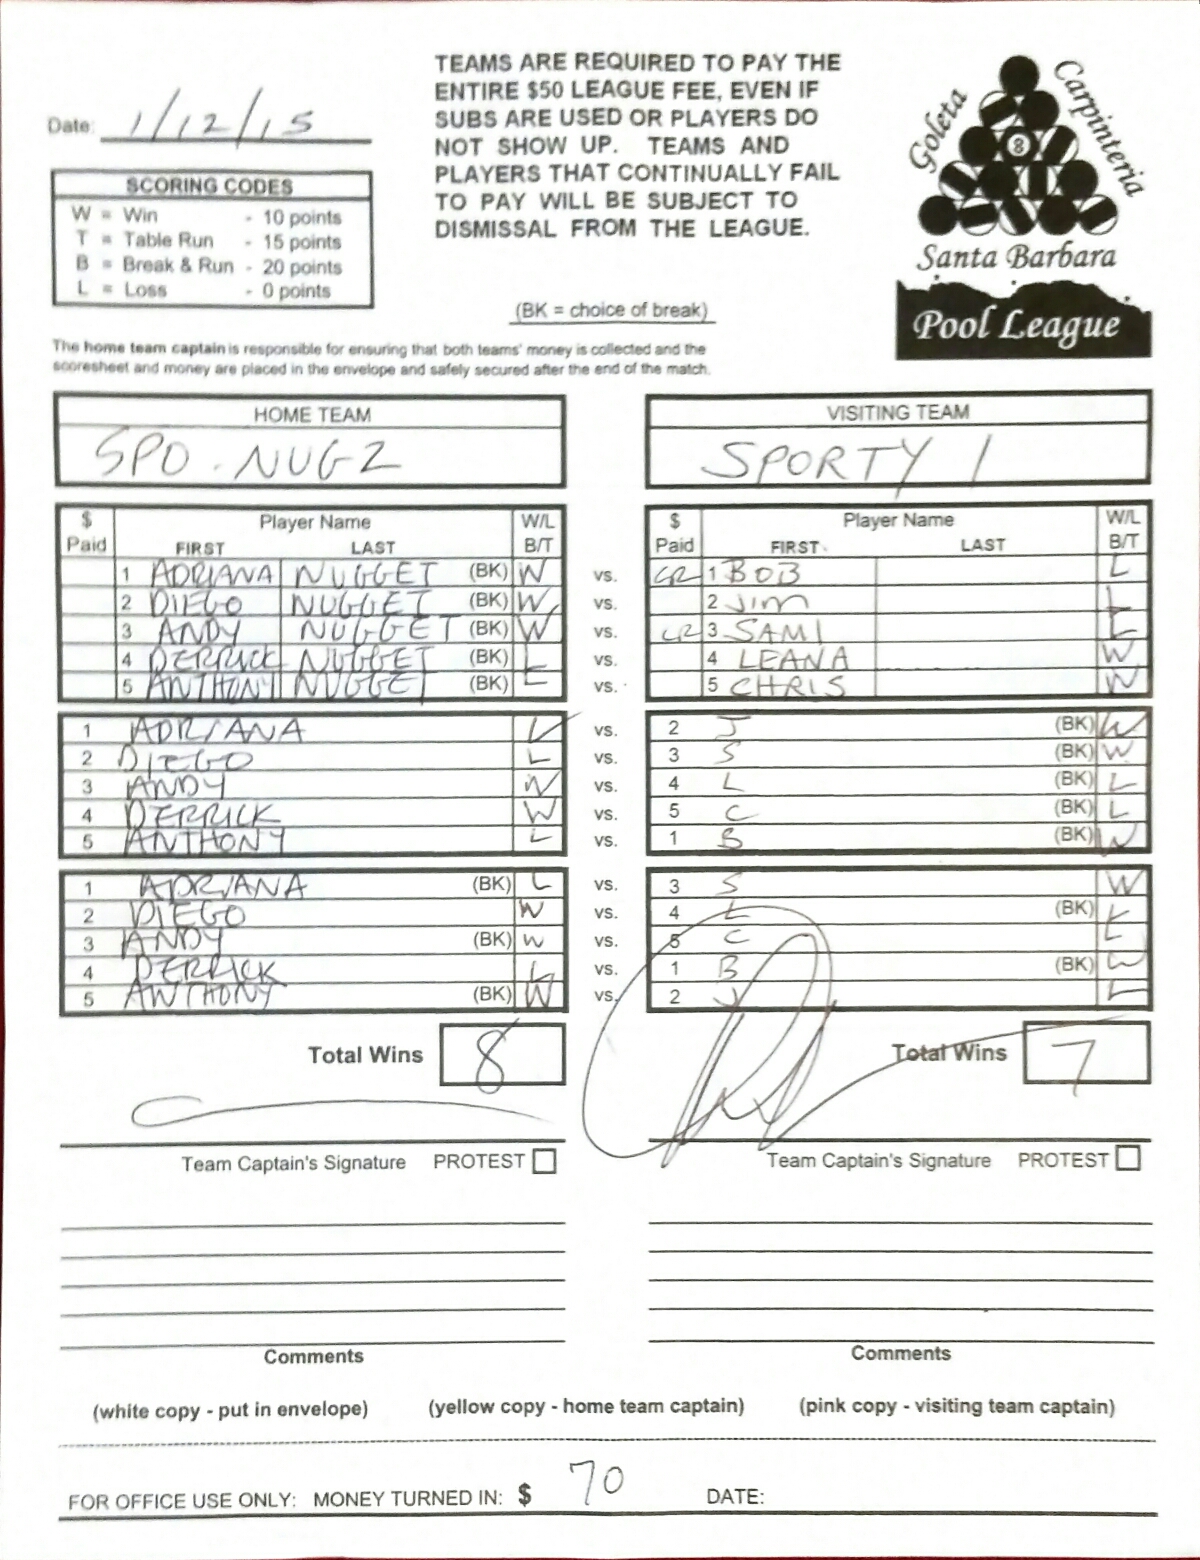 TEAMS ARE REQUIRED TO PAY THE
ENTIRE $50 LEAGUE FEE, EVEN IF
SUBS ARE USED OR PLAYERS DO
NOT SHOW UP. TEAMS AND
PLAYERS THAT CONTINUALLY FAIL
TO PAY WILL BE SUBJECT TO
DISMISSAL FROM THE LEAGUE.
Goleta
Carpinteria
8
Santa Barbara
Pool League
Date: 1/12/15
SCORING CODES
W = Win - 10 points
T = Table Run - 15 points
B = Break & Run - 20 points
L = Loss - 0 points
(BK = choice of break)
The home team captain is responsible for ensuring that both teams' money is collected and the
scoresheet and money are placed in the envelope and safely secured after the end of the match.
HOME TEAM VISITING TEAM
SPO. NUGZ SPORTY 1
$ Player Name W/L $ Player Name W/L
Paid FIRST LAST B/T Paid FIRST LAST B/T
1 ADRIANA NUGGET (BK) W vs. CR 1 BOB L
2 DIEGO NUGGET (BK) W vs. 2 JIM L
3 ANDY NUGGET (BK) W vs. CR 3 SAMI L
4 DERRICK NUGGET (BK) L vs. 4 LEANA W
5 ANTHONY NUGGET (BK) L vs. 5 CHRIS W
1 ADRIANA L vs. 2 J (BK) W
2 DIEGO L vs. 3 S (BK) W
3 ANDY W vs. 4 L (BK) L
4 DERRICK W vs. 5 C (BK) L
5 ANTHONY L vs. 1 B (BK) W
1 ADRIANA (BK) L vs. 3 S W
2 DIEGO W vs. 4 L (BK) L
3 ANDY (BK) W vs. 5 C L
4 DERRICK L vs. 1 B (BK) W
5 ANTHONY (BK) W vs. 2 J L
Total Wins 8 Total Wins 7
Team Captain's Signature PROTEST Team Captain's Signature PROTEST
Comments Comments
(white copy - put in envelope) (yellow copy - home team captain) (pink copy - visiting team captain)
FOR OFFICE USE ONLY: MONEY TURNED IN: $ 70 DATE: